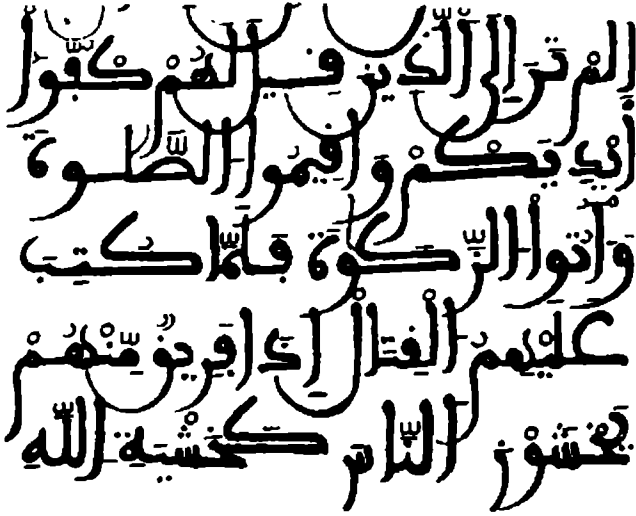 أَلَمْ تَرَ إِلَى الَّذِينَ قِيلَ لَهُمْ كُفُّوا
أَيْدِيَكُمْ وَأَقِيمُوا الصَّلَوٰةَ
وَآتُوا الزَّكَوٰةَ فَلَمَّا كُتِبَ
عَلَيْهِمُ الْقِتَالُ إِذَا فَرِيقٌ مِّنْهُمْ
يَخْشَوْنَ النَّاسَ كَخَشْيَةِ اللَّهِ